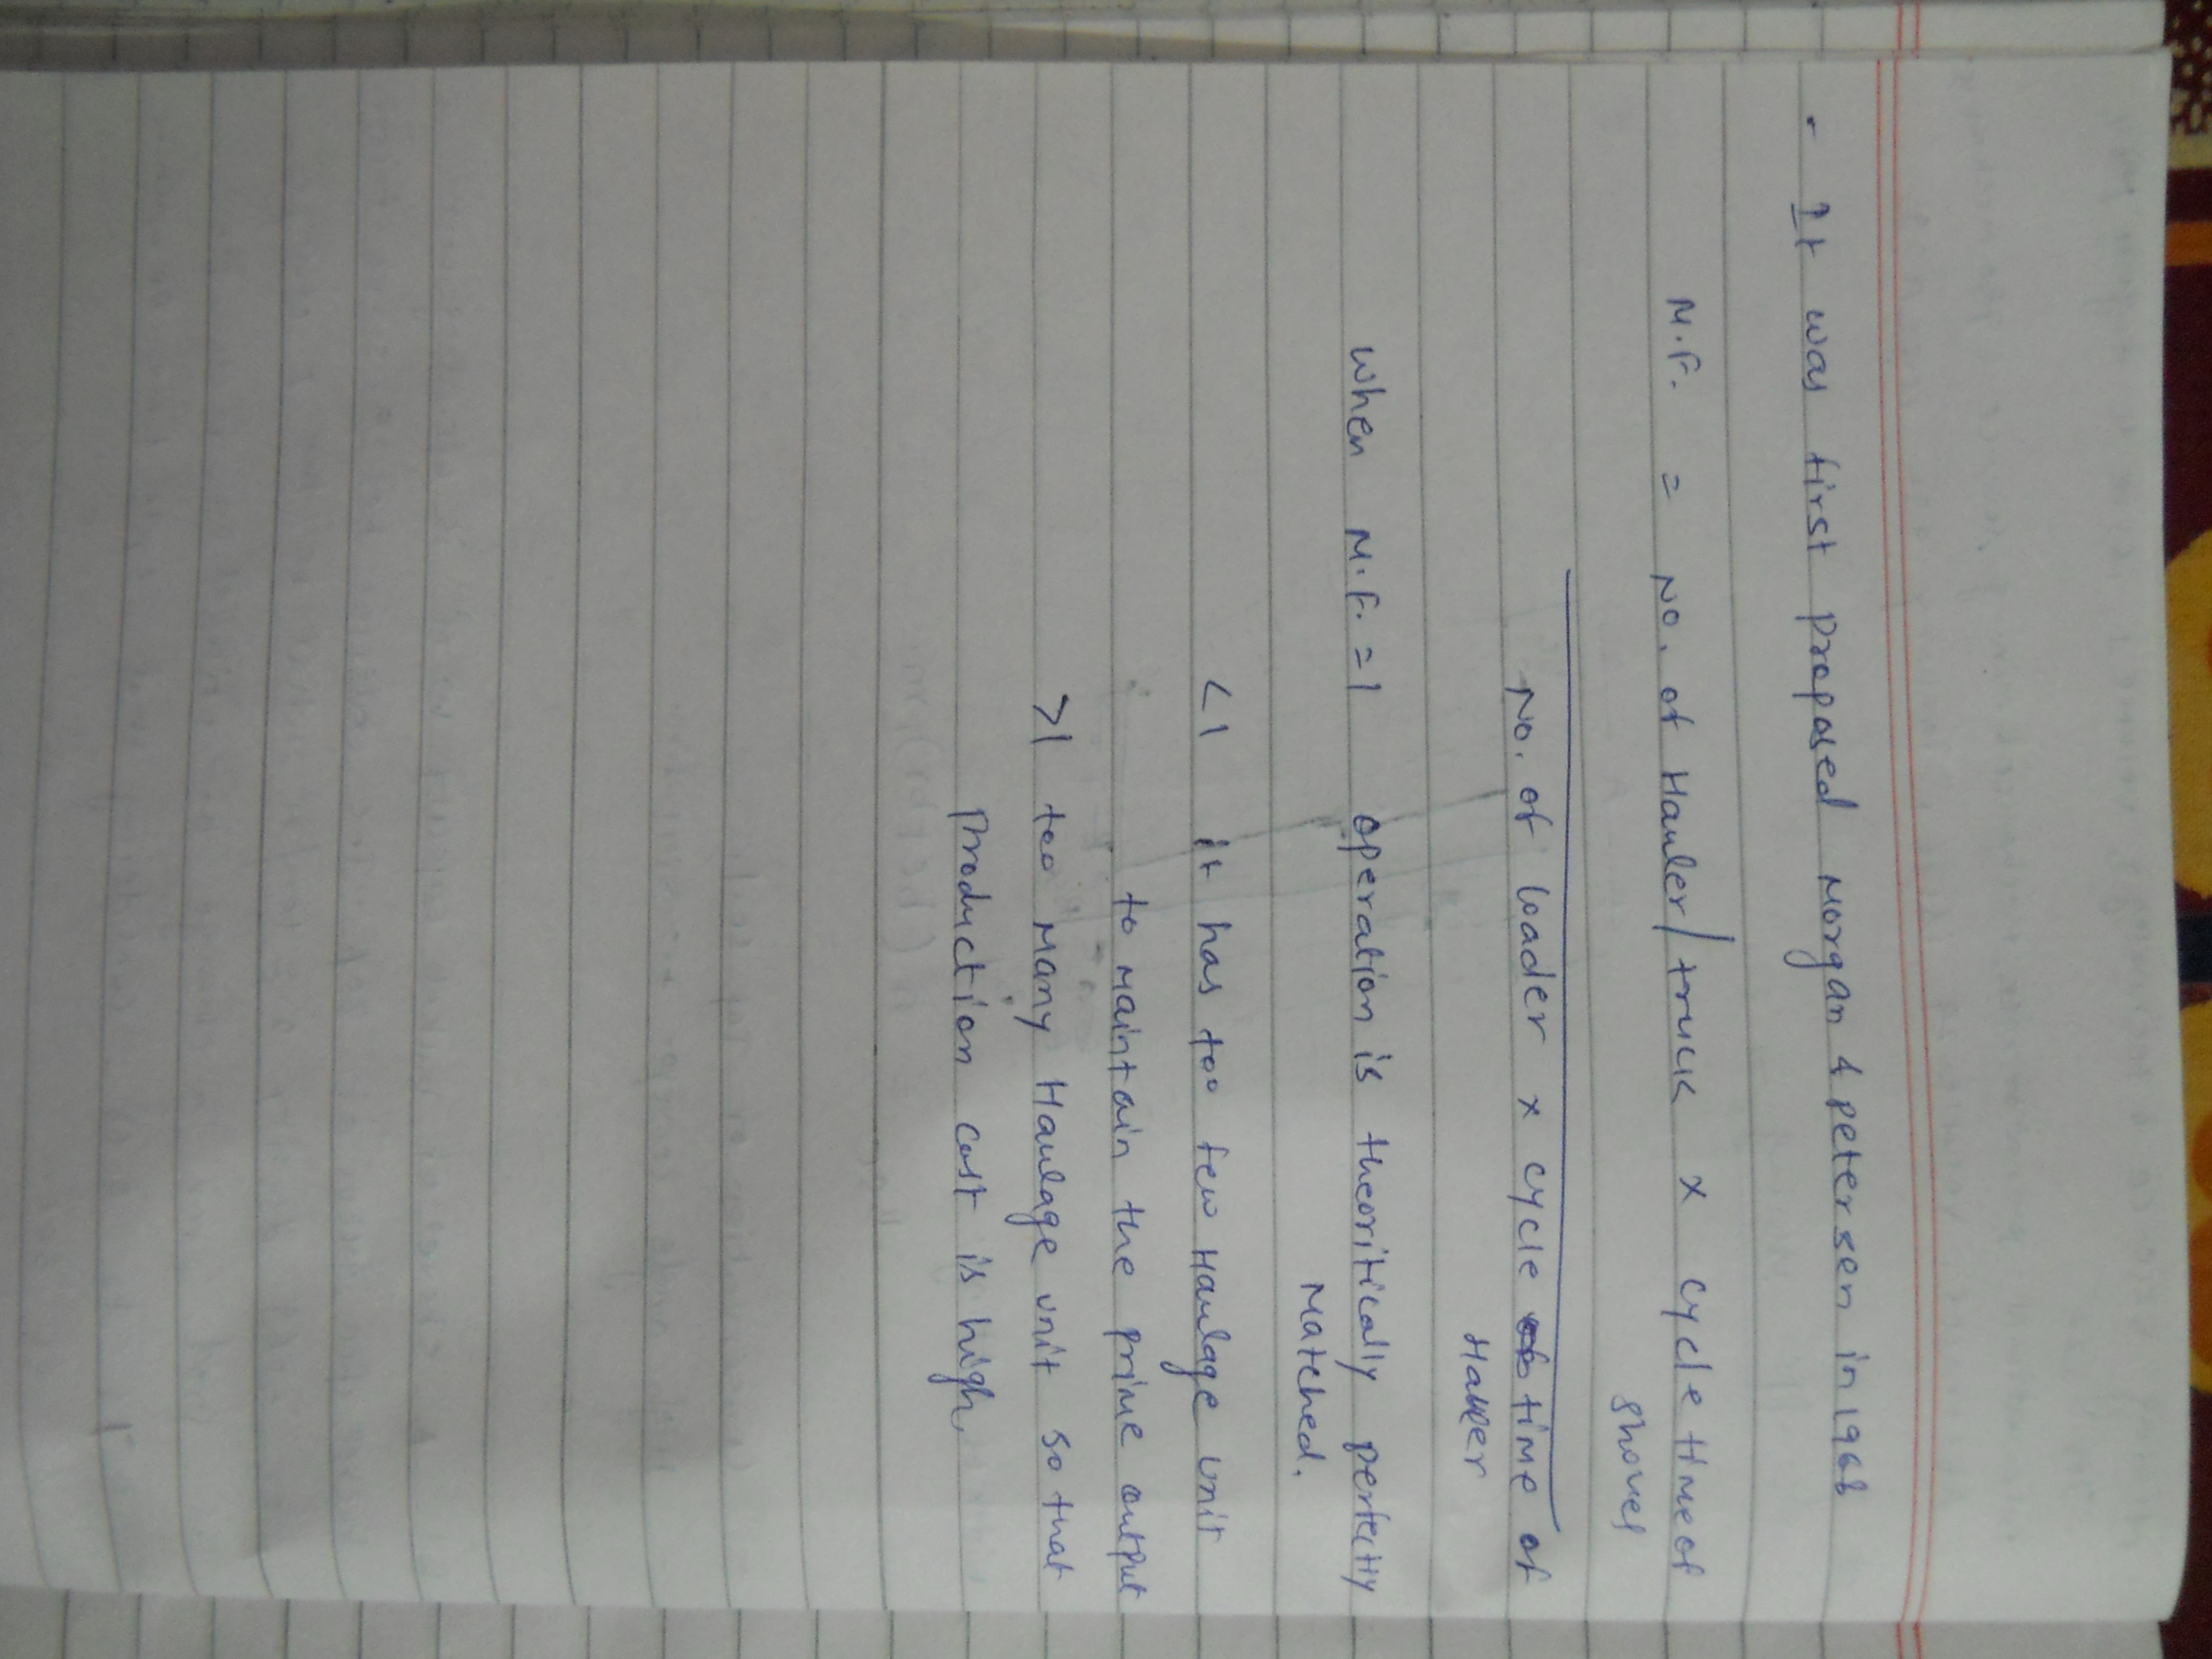 - It was first proposed Morgan & Petersen in 1968
M.F. = No. of Hauler/truck x cycle time of
shovel
No. of loader x cycle time of
Hauler
When M.F. = 1 operation is theoritically perfectly
Matched.
<1 it has too few Haulage unit
to maintain the prime output
>1 too many Haulage unit so that
Production cost is high.